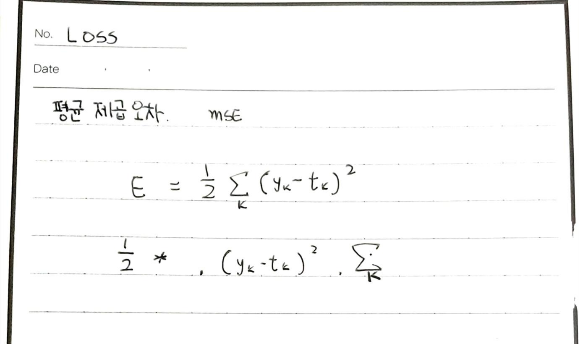 No. LOSS
Date . .
평균 제곱 오차. MSE
E = 1/2 Σ_K (y_k - t_k)^2
1/2 * . (y_k - t_k)^2 . Σ_K